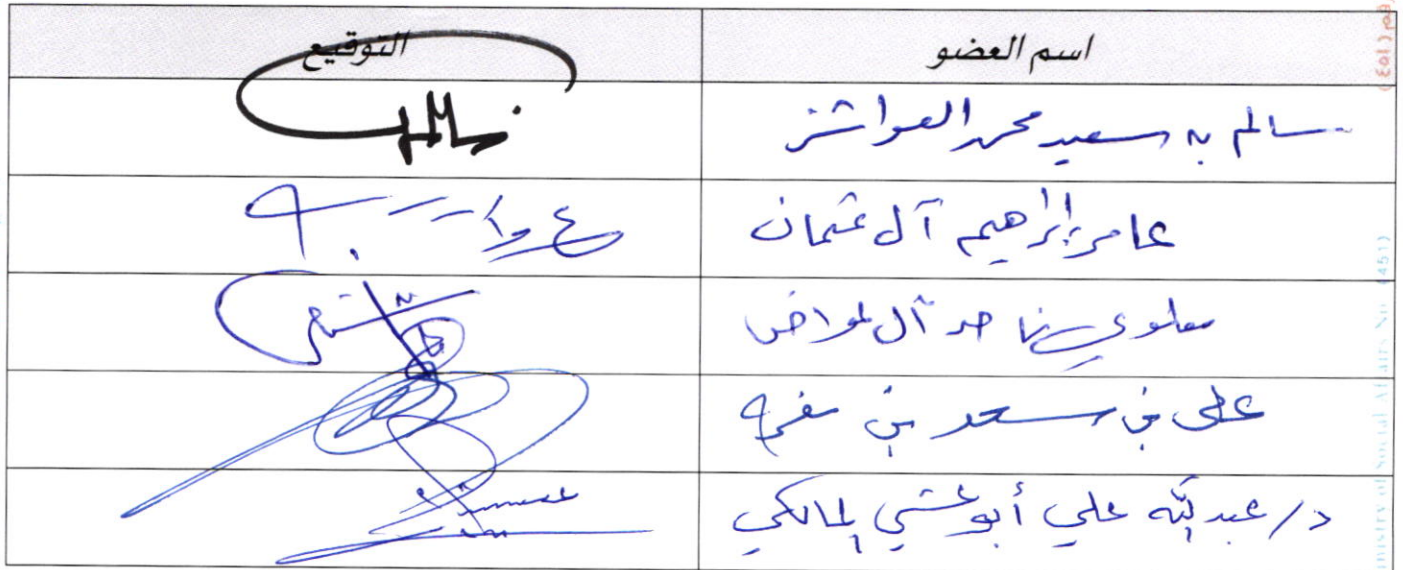 اسم العضو التوقيع
سالم بن سعيد محمد العواشز
عامر إبراهيم آل عثمان
معلوي بن ناصر آل عواض
علي بن سعد بن مفرح
د/ عبدالله علي أبو عشي المالكي
(451)
Ministry of Social Affairs No. (451)